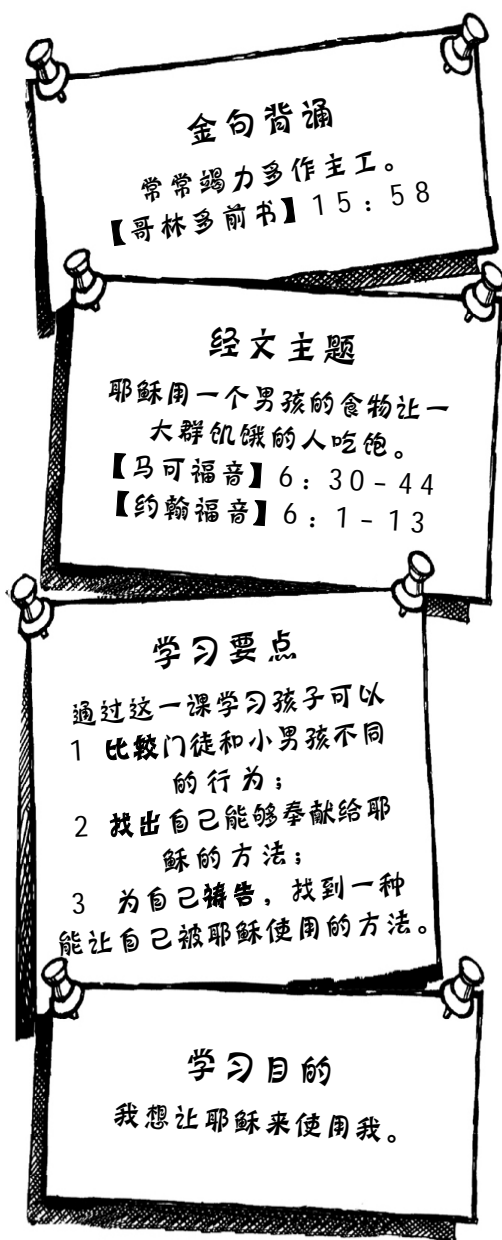 金句背诵
常常竭力多作主工。
【哥林多前书】15:58
经文主题
耶稣用一个男孩的食物让一
大群饥饿的人吃饱。
【马可福音】6:30-44
【约翰福音】6:1-13
学习要点
通过这一课学习孩子可以
1 比较门徒和小男孩不同
的行为;
2 找出自己能够奉献给耶
稣的方法;
3 为自己祷告,找到一种
能让自己被耶稣使用的方法。
学习目的
我想让耶稣来使用我。